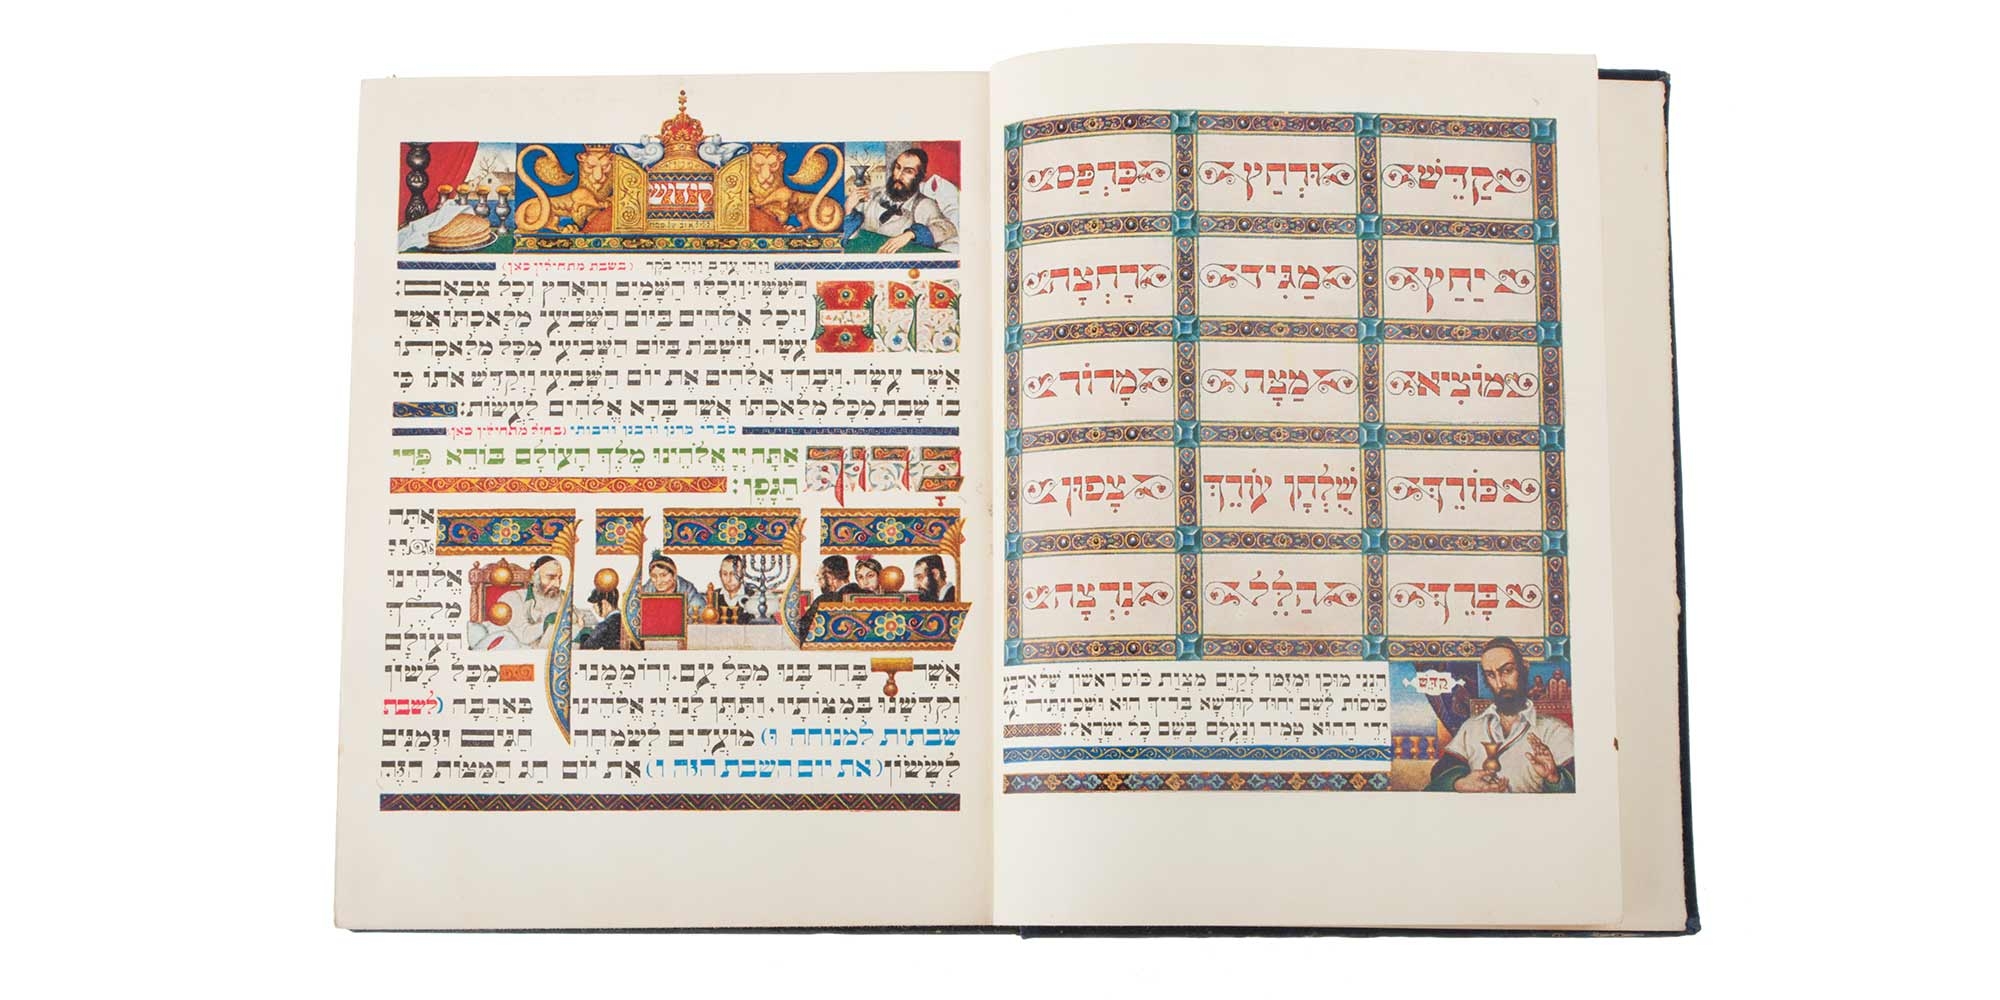 קַדֵּשׁ וּרְחַץ כַּרְפַּס
יַחַץ מַגִּיד רָחְצָה
מוֹצִיא מַצָּה מָרוֹר
כּוֹרֵךְ שֻׁלְחָן עוֹרֵךְ צָפוּן
בָּרֵךְ הַלֵּל נִרְצָה
קַדֵּשׁ
הִנְנִי מוּכָן וּמְזֻמָּן לְקַיֵּם מִצְוַת כּוֹס רִאשׁוֹן שֶׁל אַרְבַּע
כּוֹסוֹת לְשֵׁם יִחוּד קוּדְשָׁא בְּרִיךְ הוּא וּשְׁכִינְתֵּיהּ עַל
יְדֵי הַהוּא טָמִיר וְנֶעְלָם בְּשֵׁם כָּל יִשְׂרָאֵל:
קידוש
וַיְהִי עֶרֶב וַיְהִי בֹקֶר (בשבת מתחילין כאן)
יוֹם הַשִּׁשִּׁי: וַיְכֻלּוּ הַשָּׁמַיִם וְהָאָרֶץ וְכָל צְבָאָם:
וַיְכַל אֱלֹהִים בַּיּוֹם הַשְּׁבִיעִי מְלַאכְתּוֹ אֲשֶׁר
עָשָׂה. וַיִּשְׁבֹּת בַּיּוֹם הַשְּׁבִיעִי מִכָּל מְלַאכְתּוֹ
אֲשֶׁר עָשָׂה. וַיְבָרֶךְ אֱלֹהִים אֶת יוֹם הַשְּׁבִיעִי וַיְקַדֵּשׁ אֹתוֹ כִּי
בוֹ שָׁבַת מִכָּל מְלַאכְתּוֹ אֲשֶׁר בָּרָא אֱלֹהִים לַעֲשׂוֹת:
סברי מרנן ורבנן ורבותי (בחול מתחילין כאן)
בָּרוּךְ אַתָּה יְיָ אֱלֹהֵינוּ מֶלֶךְ הָעוֹלָם בּוֹרֵא פְּרִי
הַגָּפֶן:
ברוך אַתָּה
יְיָ
אֱלֹהֵינוּ
מֶלֶךְ
הָעוֹלָם
אֲשֶׁר בָּחַר בָּנוּ מִכָּל עָם. וְרוֹמְמָנוּ מִכָּל לָשׁוֹן
וְקִדְּשָׁנוּ בְּמִצְוֹתָיו. וַתִּתֶּן לָנוּ יְיָ אֱלֹהֵינוּ בְּאַהֲבָה (לשבת
שבתות למנוחה ו) מוֹעֲדִים לְשִׂמְחָה חַגִּים וּזְמַנִּים
לְשָׂשׂוֹן (את יום השבת הזה ו) אֶת יוֹם חַג הַמַּצּוֹת הַזֶּה